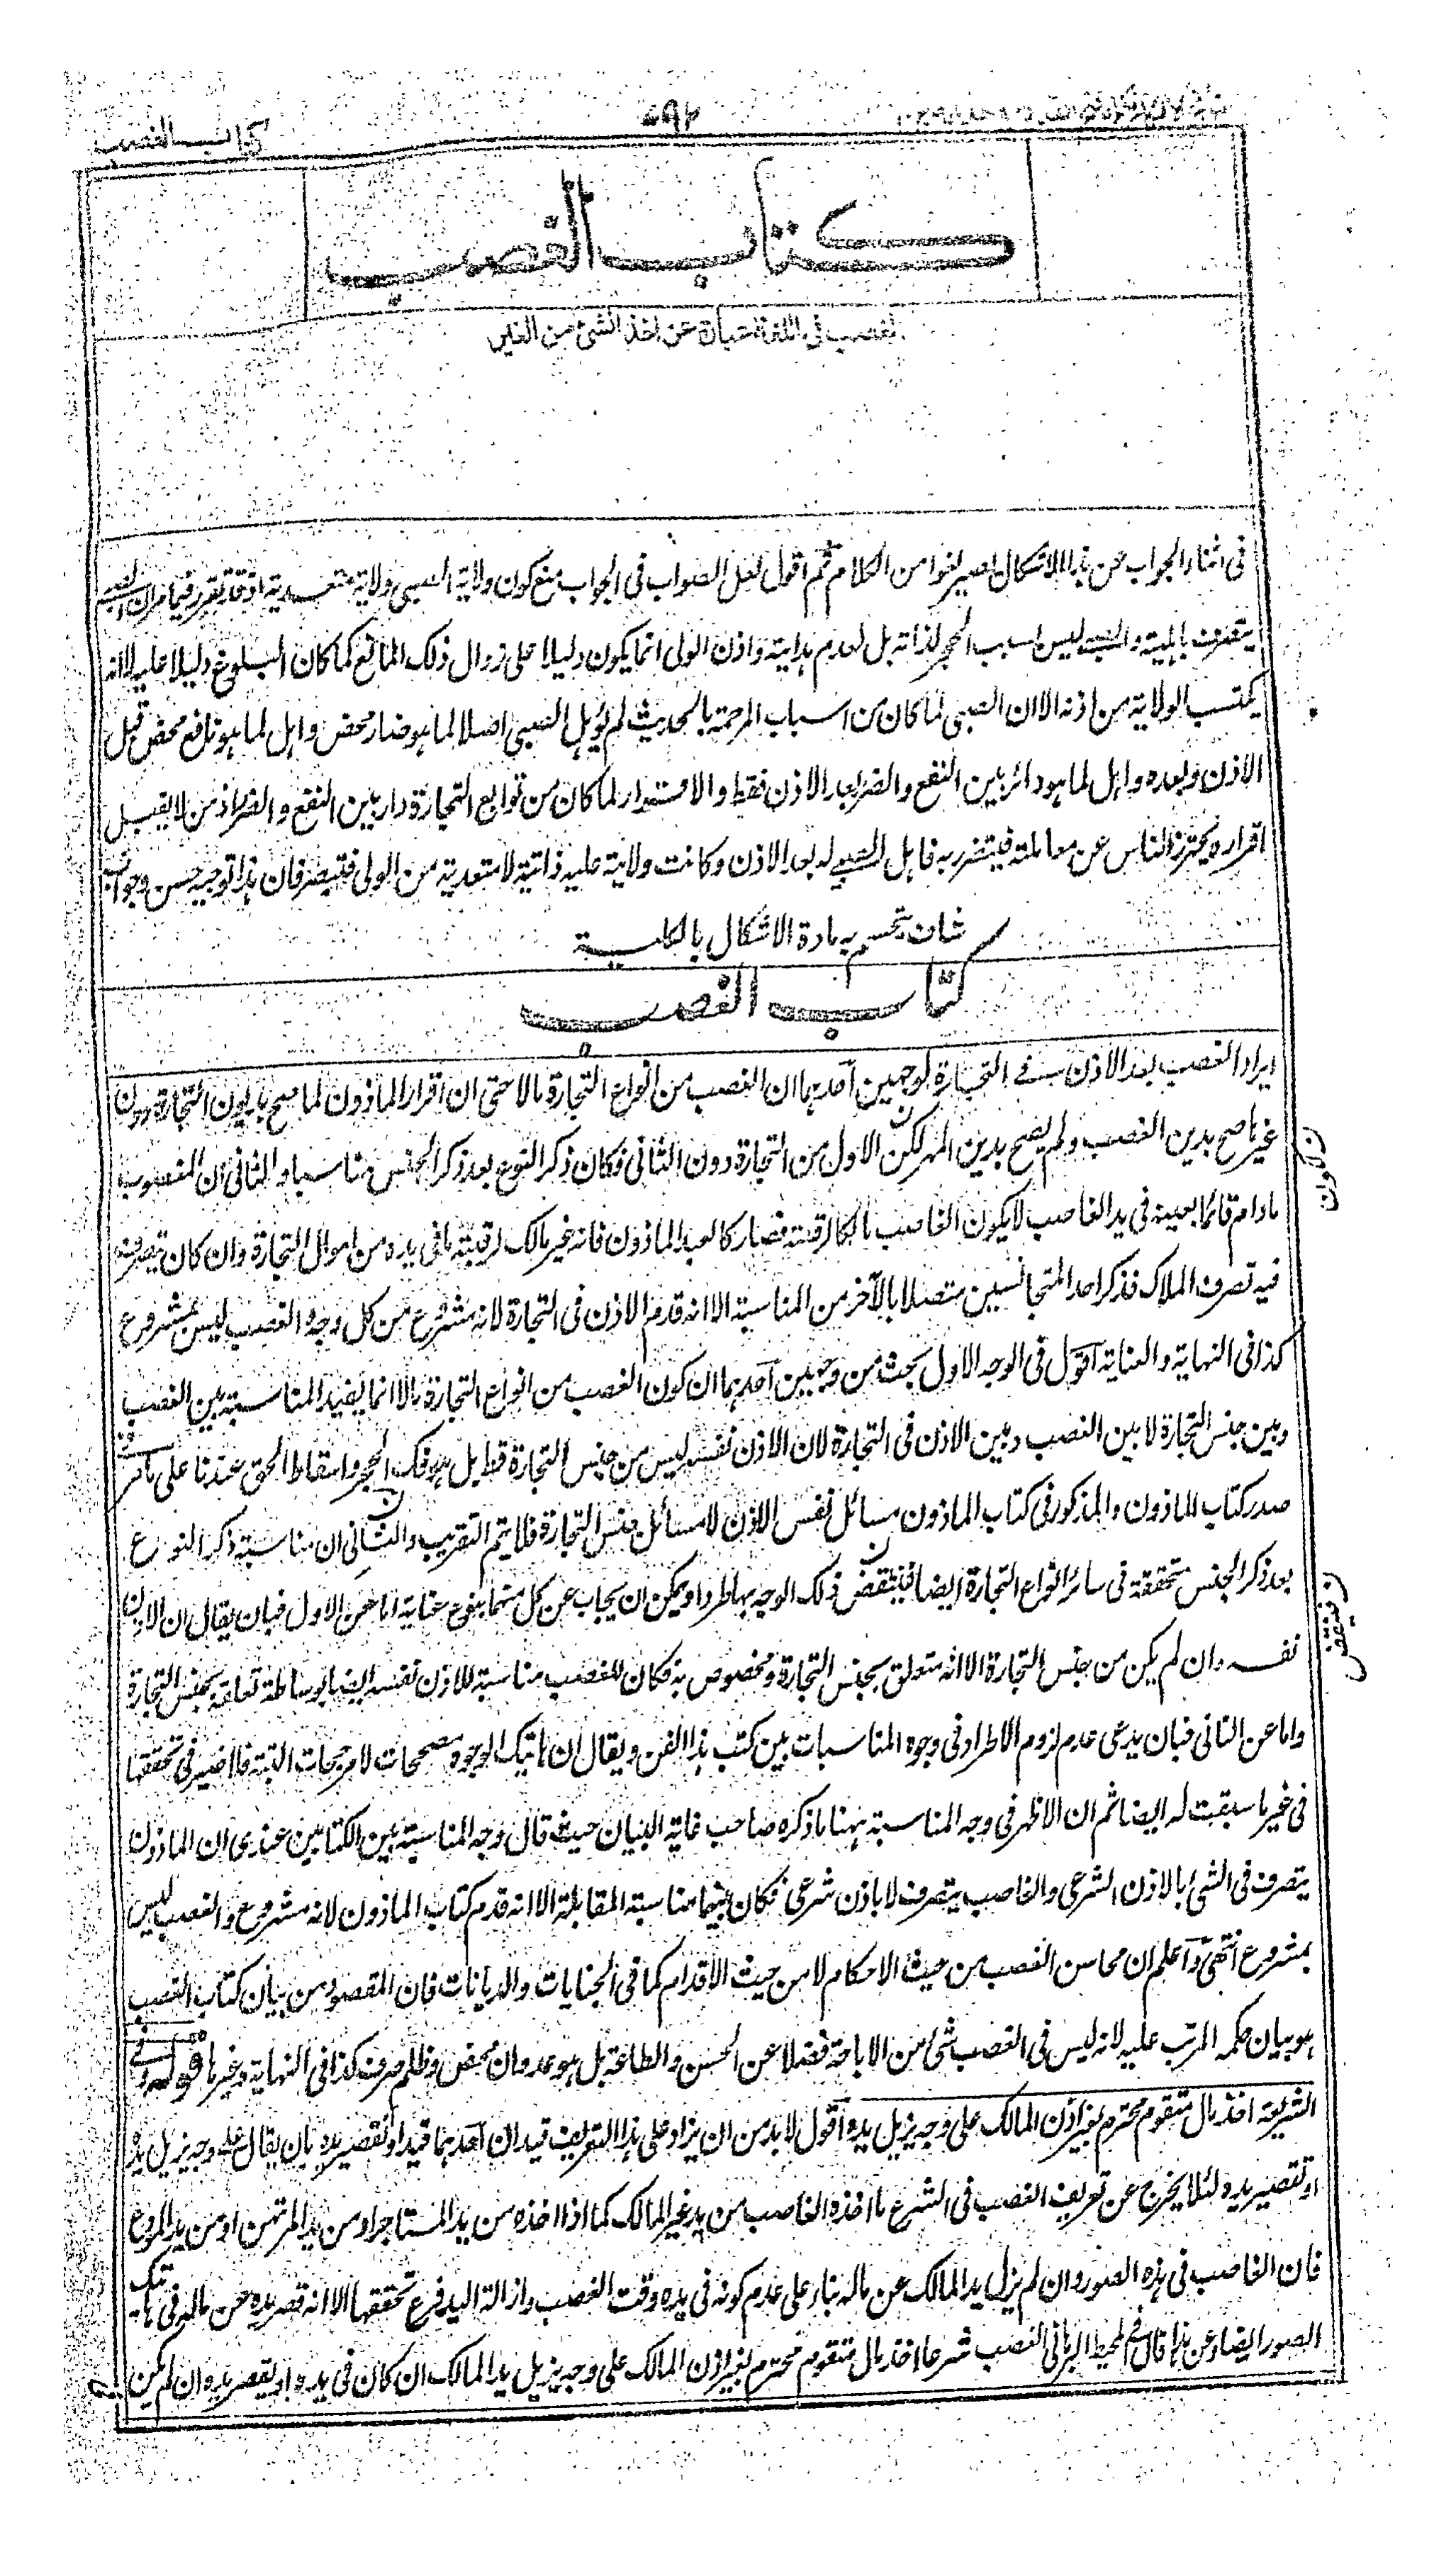 كتاب الغصب
كتاب الغصب
الغصب في اللغة عبارة عن اخذ الشئ من الغير
فى اثناء الجواب عن هذا الاشكال يصير لغوا من الكلام ثم اقول لعل الصواب فى الجواب منع كون ولاية الصبى ولاية متعدية اذ قد تقرر فيما مر ان الصبى
يتصرف باهليته والصبى ليس بسبب الحجر لذاته بل لعدم هدايته واذن الولى انما يكون دليلا على زوال ذلك المانع كما كان البلوغ دليلا عليه لا انه
يكتسب الولاية من اذنه الا ان الصبى لما كان من اسباب المرحمة بالحديث لم يؤهل الصبى اصلا لما هو ضار محض واهل لما هو نافع محض قبل
الاذن وبعده واهل لما هو دائر بين النفع والضر بعد الاذن فقط والاقرار لما كان من توابع التجارة دار بين النفع والضر اذ من لا يقبل
اقراره يحترز الناس عن معاملته فيتضرر به فاهل الصبى له بعد الاذن وكانت ولايته عليه ذاتية لا متعدية من الولى فتبصر فان هذا توجيه حسن وجواب
شاف ينحسم به مادة الاشكال بالكلية
كتاب الغصب
ايراد الغصب بعد الاذن فى التجارة لوجهين احدهما ان الغصب من انواع التجارة مآلا حتى ان اقرار الماذون لما صح بديون التجارة دون
غيرها صح بدين الغصب ولم يصح بدين المهر لكن الاول من التجارة دون الثانى فكان ذكر النوع بعد ذكر الجنس مناسبا والثانى ان المغصوب
ن لكون
مادام قائما بعينه فى يد الغاصب لا يكون الغاصب مالكا لرقبته فصار كالعبد الماذون فانه غير مالك لرقبة ما فى يده من اموال التجارة وان كان تصرفه
فيه تصرف الملاك فذكر احد المتجانسين متصلا بالآخر من المناسبة الا انه قدم الاذن فى التجارة لانه مشروع من كل وجه والغصب ليس بمشروع
كذا فى النهاية والعناية اقول فى الوجه الاول بحث من وجهين احدهما ان كون الغصب من انواع التجارة مآلا انما يفيد المناسبة بين الغصب
وبين جنس التجارة لا بين الغصب وبين الاذن فى التجارة لان الاذن نفسه ليس من جنس التجارة قط بل هو فك الحجر واسقاط الحق عندنا على ما مر فى
صدر كتاب الماذون والمذكور فى كتاب الماذون مسائل نفس الاذن لا مسائل جنس التجارة فلا يتم التقريب والثانى ان مناسبة ذكر النوع
بعد ذكر الجنس متحققة فى سائر انواع التجارة ايضا فينتقض ذلك الوجه بها طردا ويمكن ان يجاب عن كل منهما بنوع عناية اما عن الاول فبان يقال ان الاذن
ن فينتقض
نفسه وان لم يكن من جنس التجارة الا انه متعلق بجنس التجارة ومخصوص به فكان للغصب مناسبة للاذن نفسه ايضا بوساطة تعلقه بجنس التجارة
واما عن الثانى فبان يدعى عدم لزوم الاطراد فى وجوه المناسبات بين كتب هذا الفن ويقال ان هاتيك الوجوه مصححات لا مرجحات البتة فلا ضير فى تحققها
فى غير ما سيقت له ايضا ثم ان الاظهر فى وجه المناسبة ههنا ما ذكره صاحب غاية البيان حيث قال وجه المناسبة بين الكتابين عندى ان الماذون
يتصرف فى الشئ بالاذن الشرعى والغاصب يتصرف لا باذن شرعى فكان بينهما مناسبة المقابلة الا انه قدم كتاب الماذون لانه مشروع والغصب ليس
بمشروع انتهى واعلم ان محاسن الغصب من حيث الاحكام لا من حيث الاقدام كما فى الجنايات والديانات فان المقصود من بيان كتاب الغصب
هو بيان حكمه المرتب عليه لانه ليس فى الغصب شئ من الاباحة فضلا عن الحسن والطاعة بل هو عدوان محض وظلم صرف كذا فى النهاية وغيرها قوله وفى
الشريعة اخذ مال متقوم محترم بغير اذن المالك على وجه يزيل يده اقول لا بد من ان يزاد على هذا التعريف قيدان احدهما قيد او تقصير يده بان يقال على وجه يزيل يده
او تقصير يده لئلا يخرج عن تعريف الغصب فى الشرع ما اخذه الغاصب من يد غير المالك كما اذا اخذه من يد المستاجر او من يد المرتهن او من يد المودع
فان الغاصب فى هذه الصور وان لم يزل يد المالك عن ماله بناء على عدم كونه فى يده وقت الغصب وازالة اليد فرع تحققها الا انه قصر يده عن ماله فى هاتيك
الصور ايضا وعن هذا قال فى المحيط البرهانى الغصب شرعا اخذ مال متقوم محترم بغير اذن المالك على وجه يزيل يد المالك ان كان فى يده او يقصر يده ان لم يكن